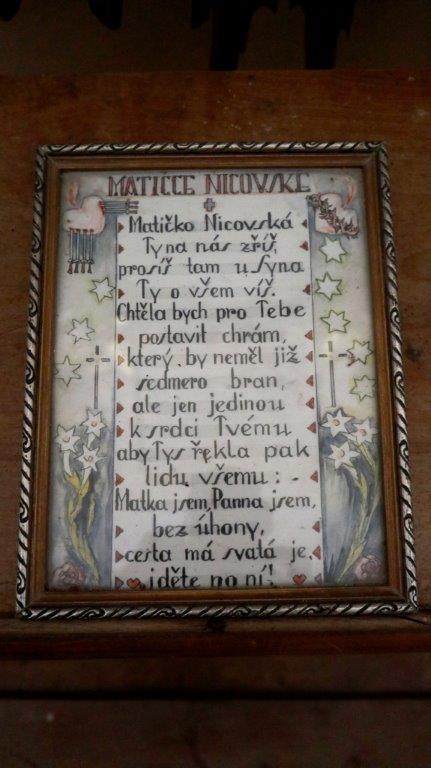 MATIČCE NICOVSKÉ
Matičko Nicovská
Ty na nás zříš,
prosíš tam u Syna
Ty o všem víš.
Chtěla bych pro Tebe
postavit chrám,
který by neměl již
sedmero bran,
ale jen jedinou
k srdci Tvému
aby Tys řekla pak
lidu všemu: -
Matka jsem, Panna jsem,
bez úhony,
cesta má svatá je,
jděte po ní!